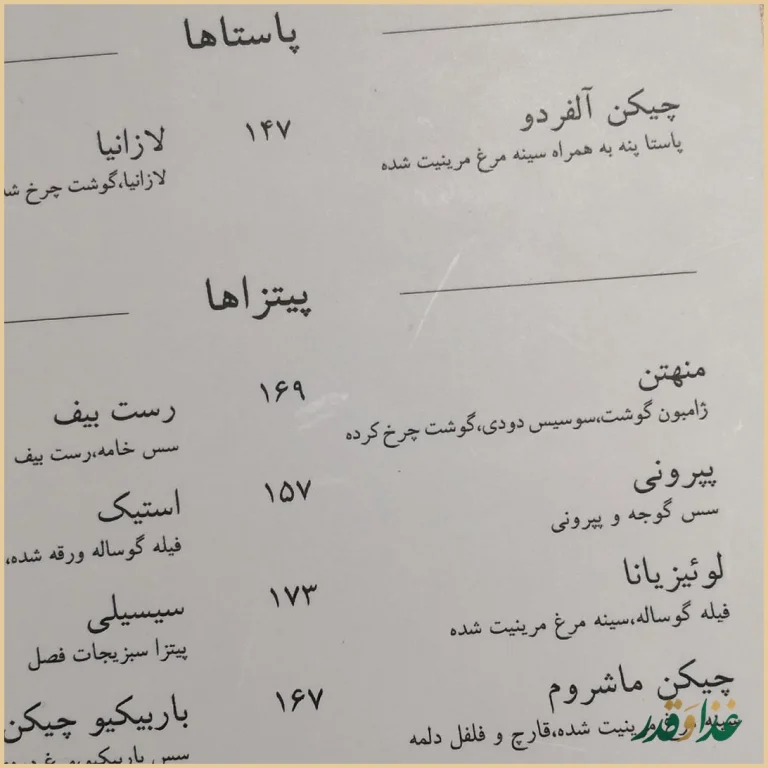 پاستاها
چیکن آلفردو ۱۴۷
پاستا پنه به همراه سینه مرغ مرینیت شده
لازانیا
لازانیا،گوشت چرخ
پیتزاها
منهتن ۱۶۹
ژامبون گوشت،سوسیس دودی،گوشت چرخ کرده
پپرونی ۱۵۷
سس گوجه و پپرونی
لوئیزیانا ۱۷۳
فیله گوساله،سینه مرغ مرینیت شده
چیکن ماشروم ۱۶۷
سینه مرغ مرینیت شده،قارچ و فلفل دلمه
رست بیف
سس خامه،رست بیف
استیک
فیله گوساله ورقه شده،
سیسیلی
پیتزا سبزیجات فصل
باربیکیو چیکن
سس باربیکیو،
غذا و قدر